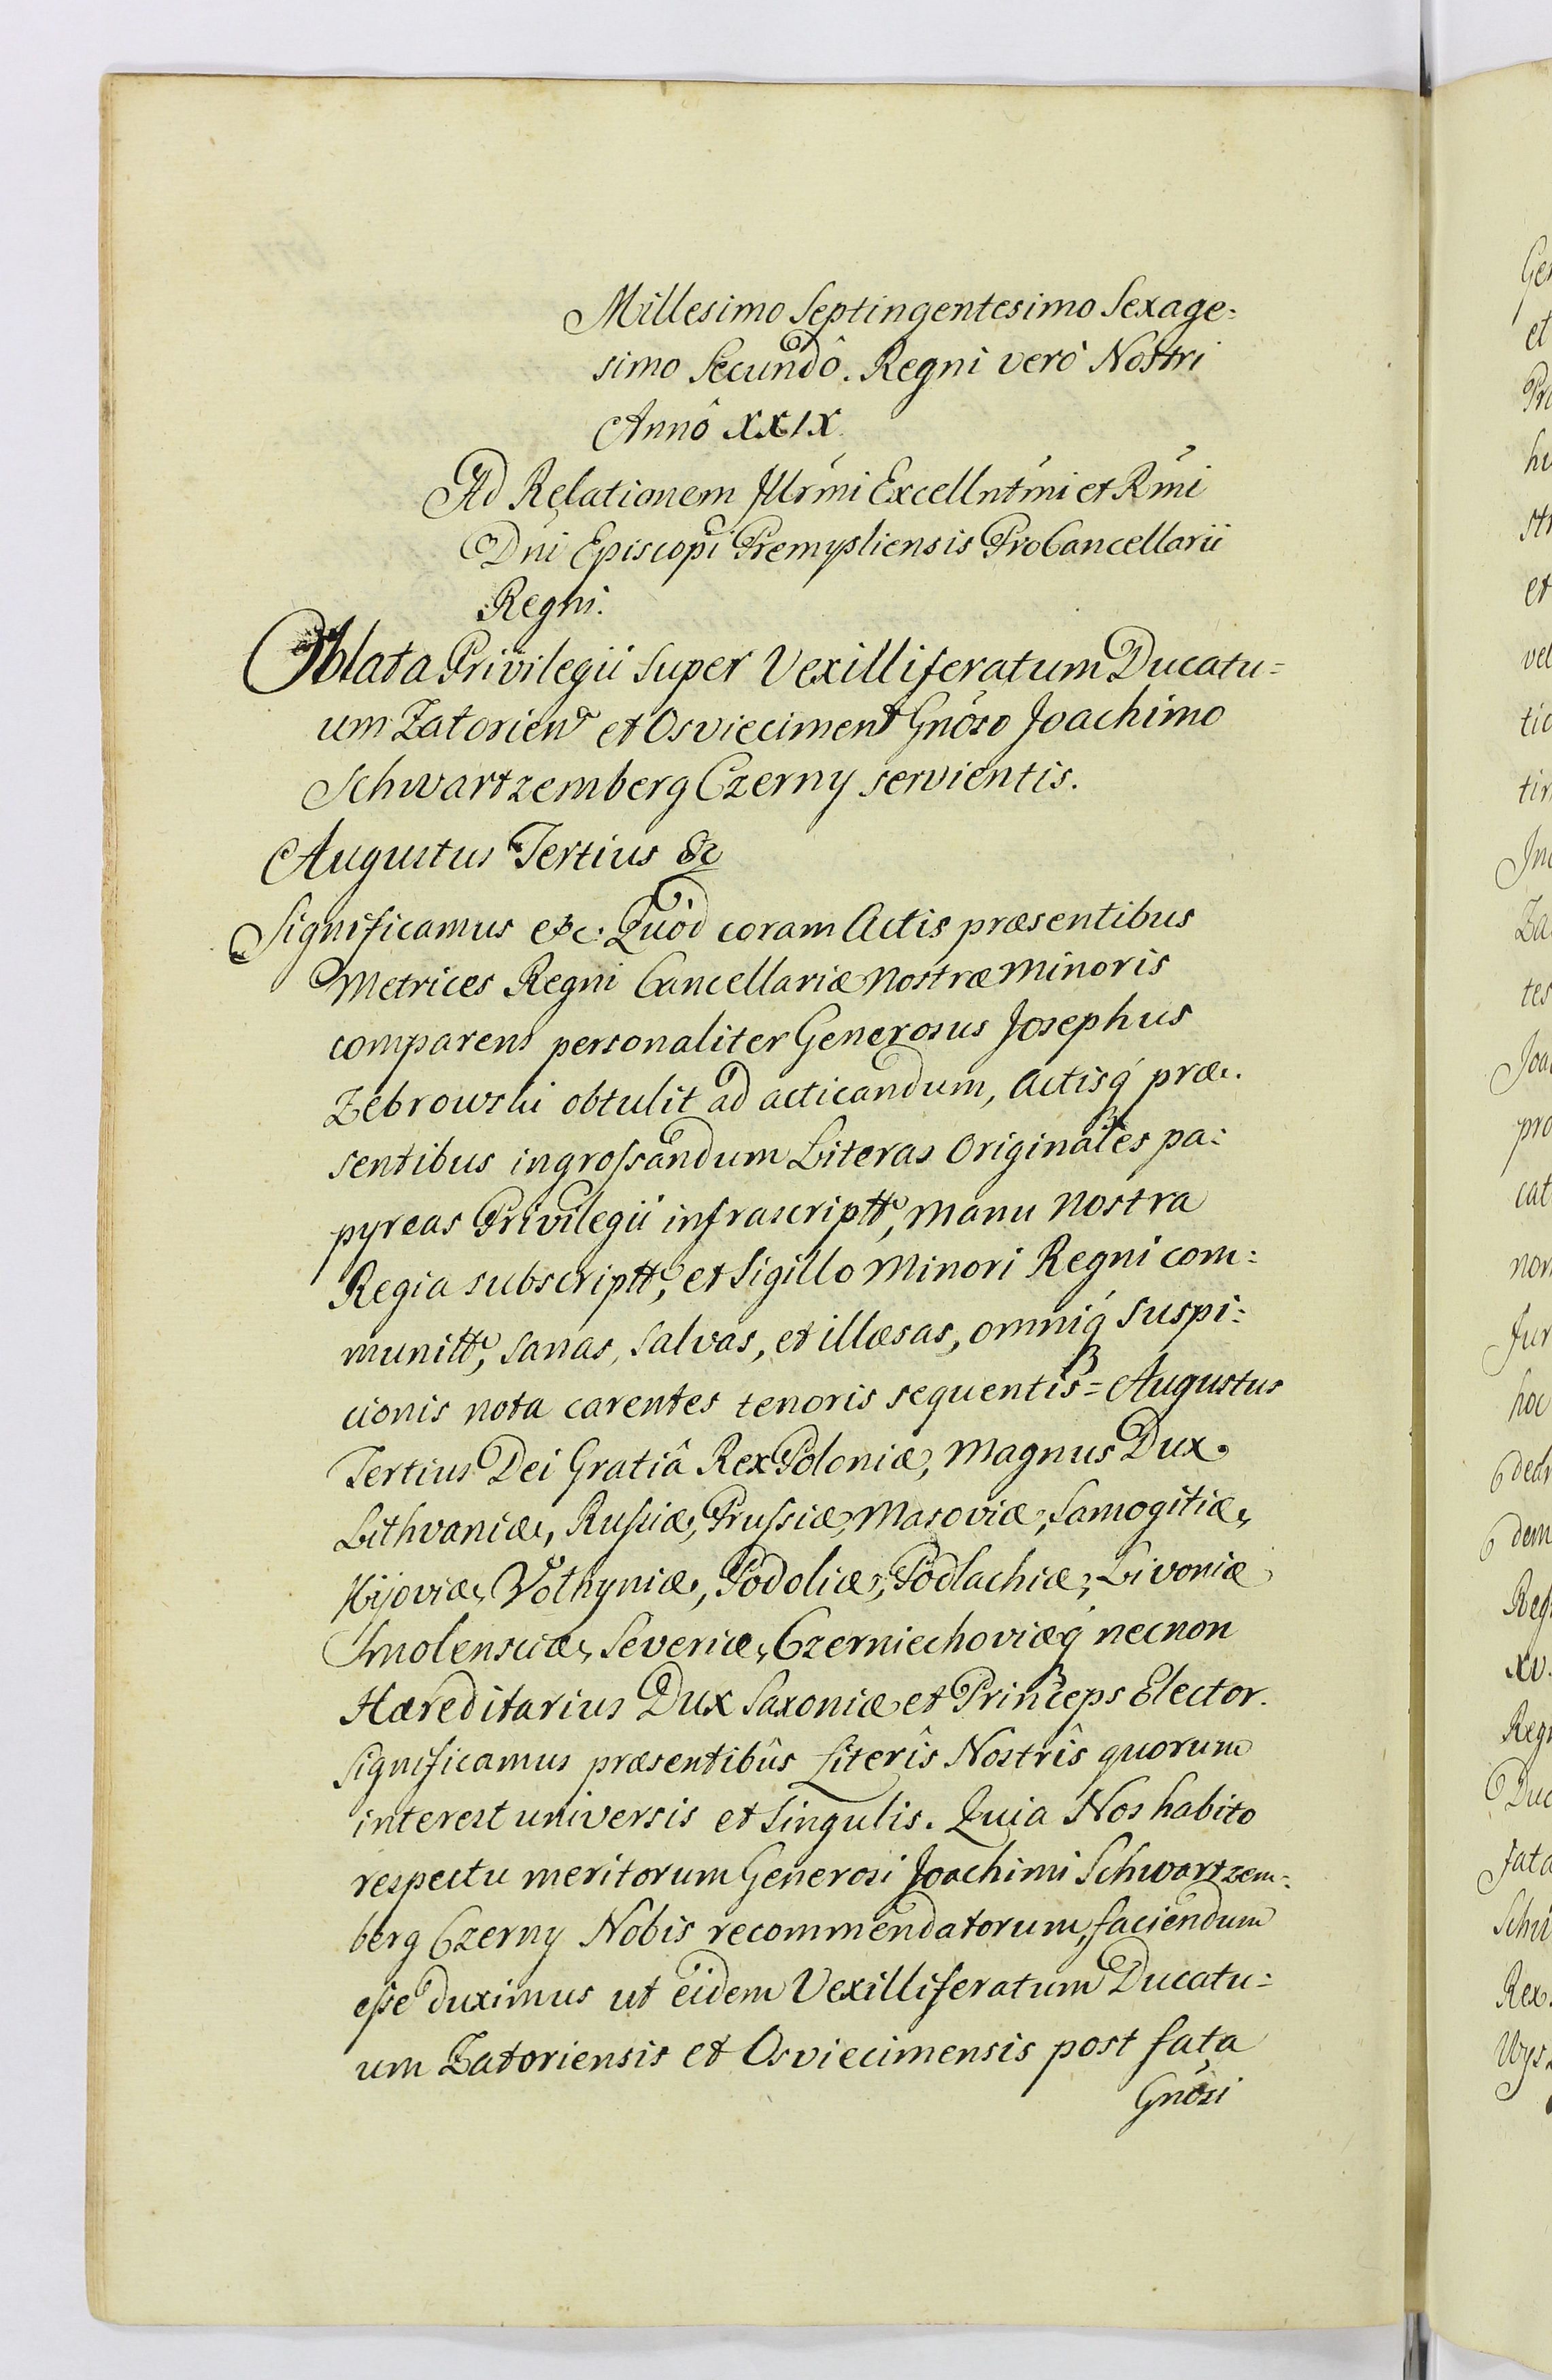 Millesimo Septingentesimo Sexage=
simo Secundô. Regni verò Nostri
Annô XXIX.
Ad Relationem Illrmi Excellntmi et Rmi
Dni Episcopi Premysliensis ProCancellarii
Regni.
Oblata Privilegii super Vexilliferatum Ducatu=
um Zatorien et Osviecimen Gnoso Joachimo
Schwartzemberg Czerny servientis.
Augustus Tertius &c
Significamus etc. Quòd coram Actis præsentibus
Metrices Regni Cancellariæ nostræ Minoris
comparens personaliter Generosus Josephus
Zebrowski obtulit ad acticandum, Actisq́ præ=
sentibus ingrossandum Literas Originales pa=
pyreas Privilegii infrascriptt, manu nostra
Regia subscriptt, et Sigillo Minori Regni com=
munitt, sanas, salvas, et illæsas, omniq́ suspi=
cionis nota carentes tenoris sequentis = Augustus
Tertius Dei Gratiâ Rex Poloniæ, Magnus Dux
Lithvaniæ, Russiæ, Prussiæ, Masoviæ, Samogitiæ,
Kijoviæ, Volhyniæ, Podoliæ, Podlachiæ, Livoniæ
Smolensciæ, Severiæ, Czerniechoviæq́ necnon
Hæreditarius Dux Saxoniæ et Princeps Elector.
Significamus præsentibûs Literîs Nostrîs quorum
interest universis et singulis. Quia Nos habito
respectu meritorum Generosi Joachimi Schwartzem=
berg Czerny Nobis recommendatorum, faciendum
esse duximus ut eidem Vexilliferatum Ducatu=
um Zatoriensis et Osviecimensis post fata
Gnosi